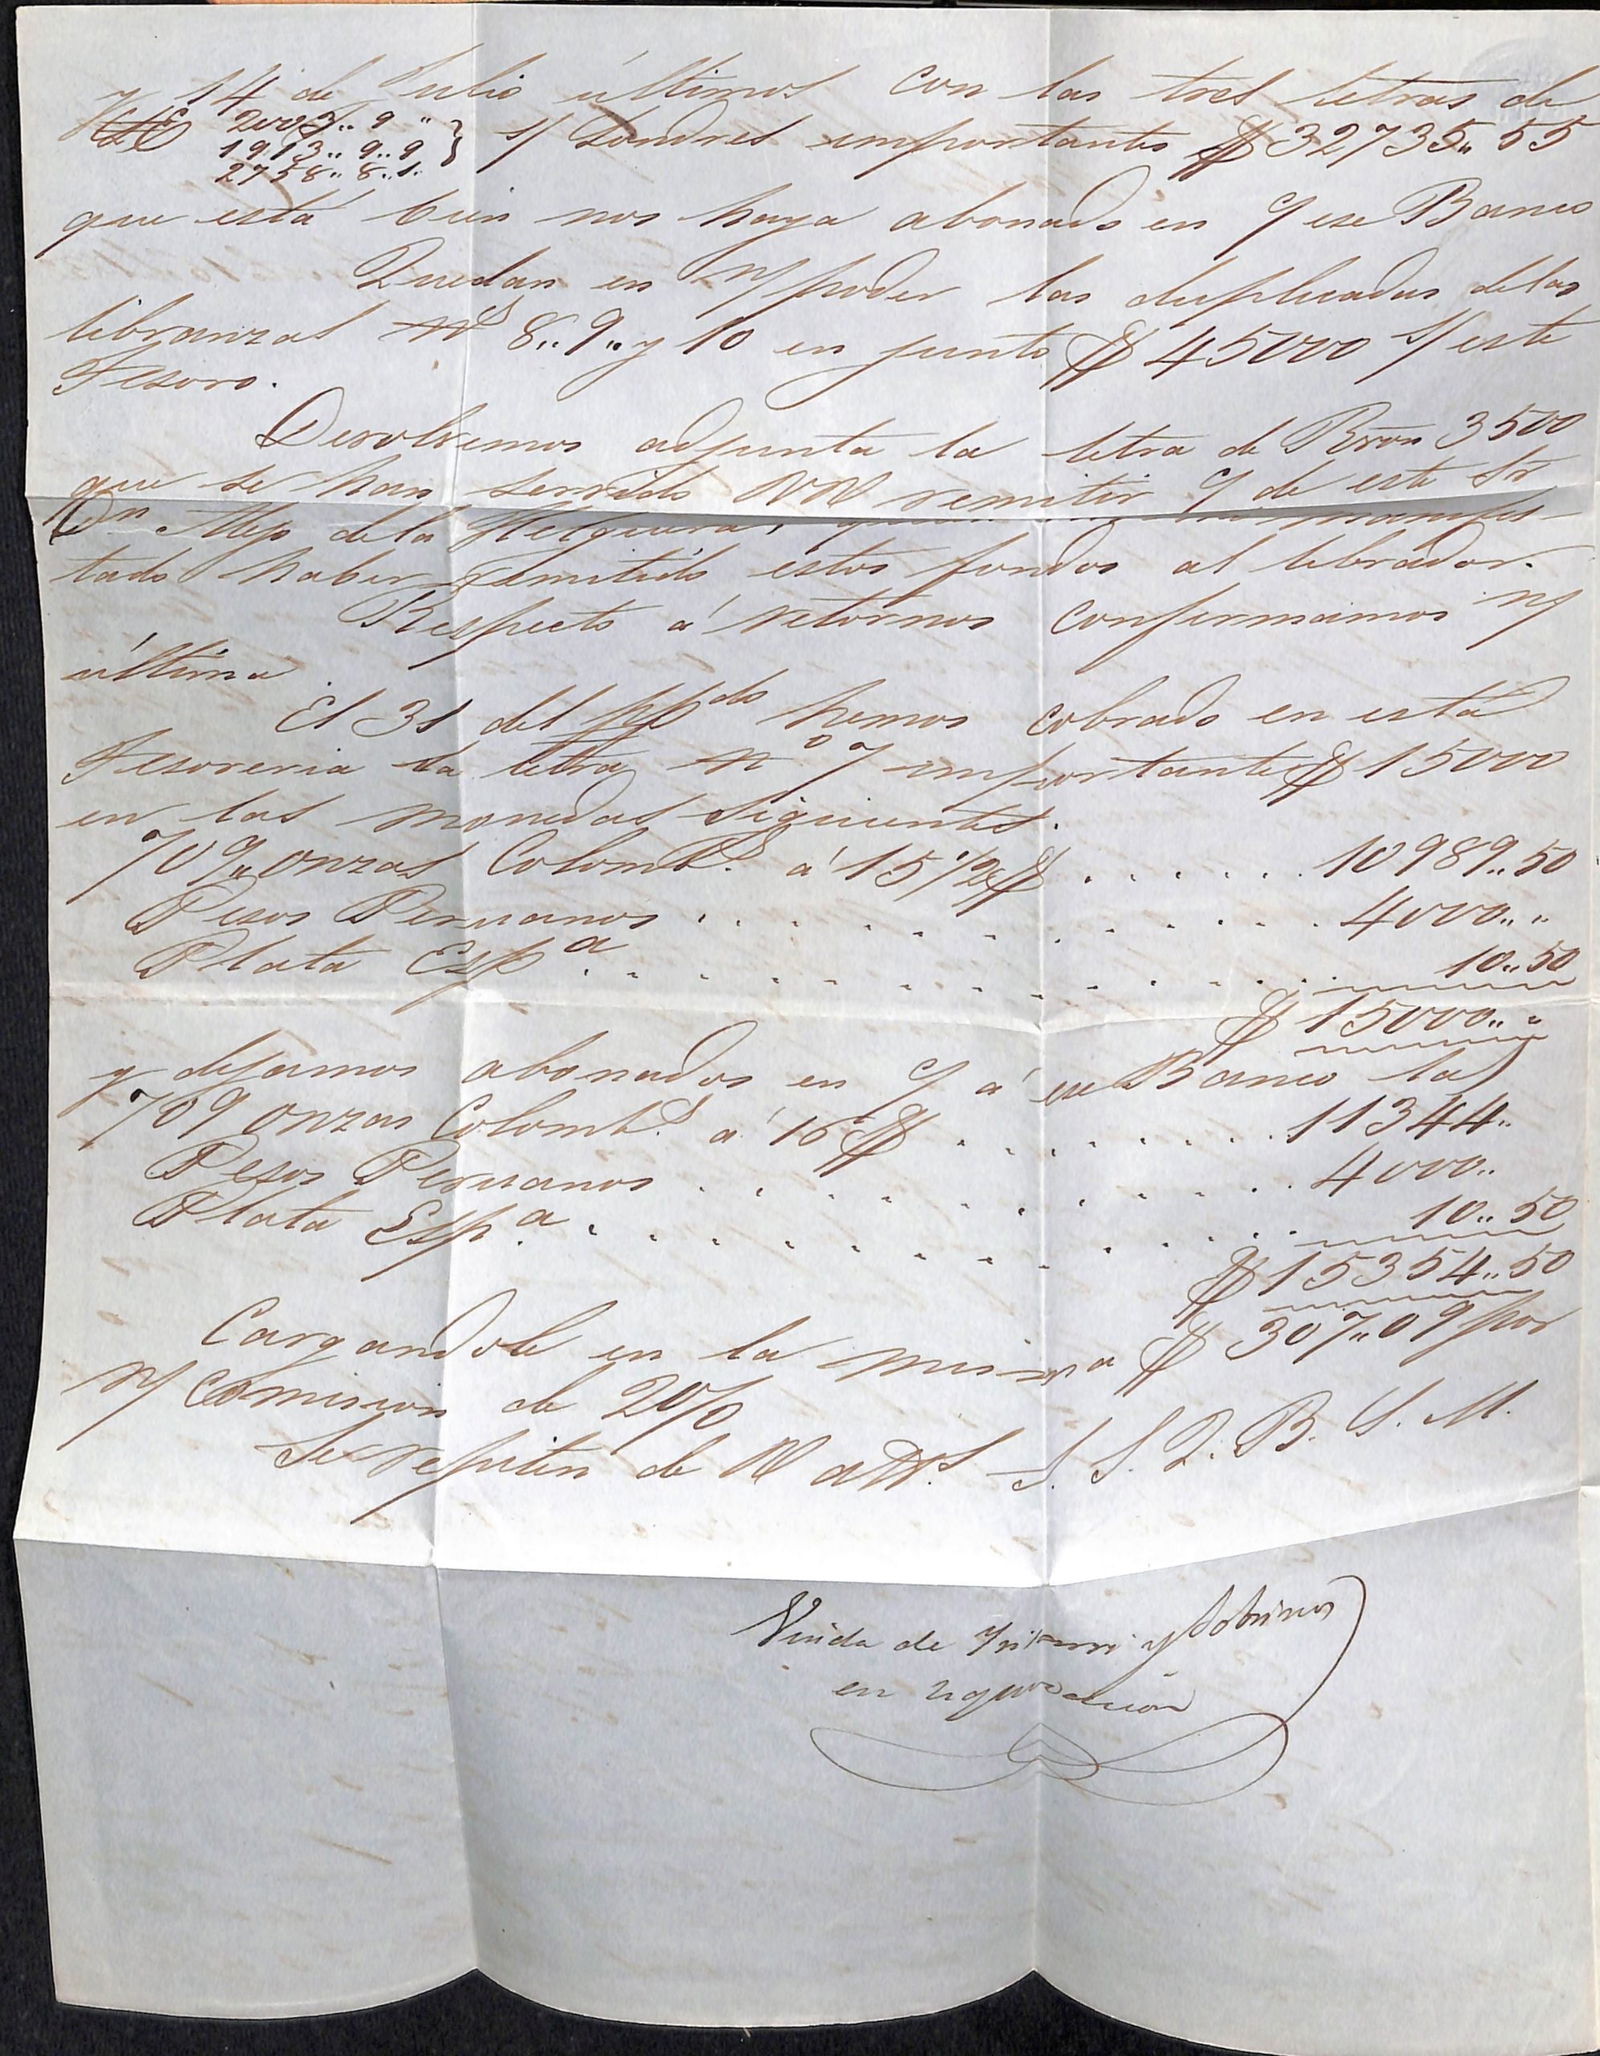 y 14 de Julio últimos con las tres letras de
2003.. 9 "
1913.. 9.. 9 } s/ Londres importantes $ 32735.. 55
2758.. 8.. 1.
que está bien nos haya abonado en c/ ese Banco
Quedan en n/ poder las duplicadas de las
libranzas Nˢ 8.. 9.. y 10 en junto $ 45000 s/ este
Tesoro.
Devolvemos adjunta la letra de Rvon 3500
que se han servido VV remitir c/ de este Sr
Dn Alejo de la Helguera, manifes-
tado haber remitido estos fondos al librador.
Respecto á retornos confirmamos n/
última.
El 31 del ppdo hemos cobrado en está
Tesoreria la letra Nº 7 importante $ 15000
en las monedas siguientes.
709,, onzas Colombs. á 15 1/2 $ . . . . . . 10989.. 50
Pesos Peruanos . . . . . . . . . . . 4000.. "
Plata Espª . . . . . . . . . . . . 10.. 50
$ 15000.. "
y dejamos abonados en c/ á ese Banco las
709 onzas Colombs. á 16 $ . . . . . . . . 11344..
Pesos Peruanos . . . . . . . . . . . 4000..
Plata Espª. . . . . . . . . . . . . 10.. 50
$ 15354.. 50
Cargandole en la misma $ 307.. 09 por
n/ Comision de 2 0/0
Se repiten de V attˢ S. S. Q. B. S. M.
Viuda de y Sobrinos
en liquidacion